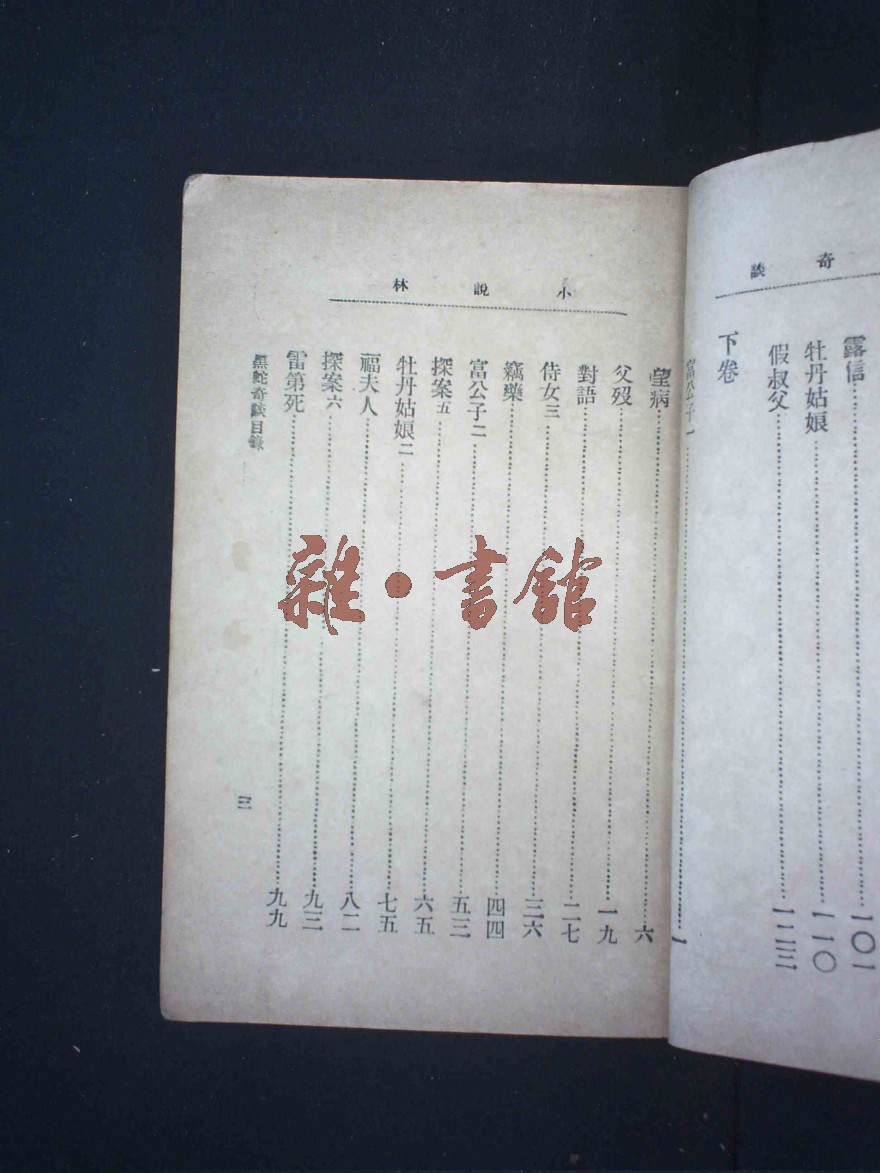 奇談
露信……一〇一
牡丹姑娘……一一〇
假叔父……一二三
下卷
富公子一……一
小說林
望病……六
父歿……一九
對語……二七
侍女三……三六
竊藥……四四
富公子二……五三
探案五……六五
牡丹姑娘二……七五
福夫人……八二
探案六……九三
雷第死……九九
黑蛇奇談目錄
三
雜·書館